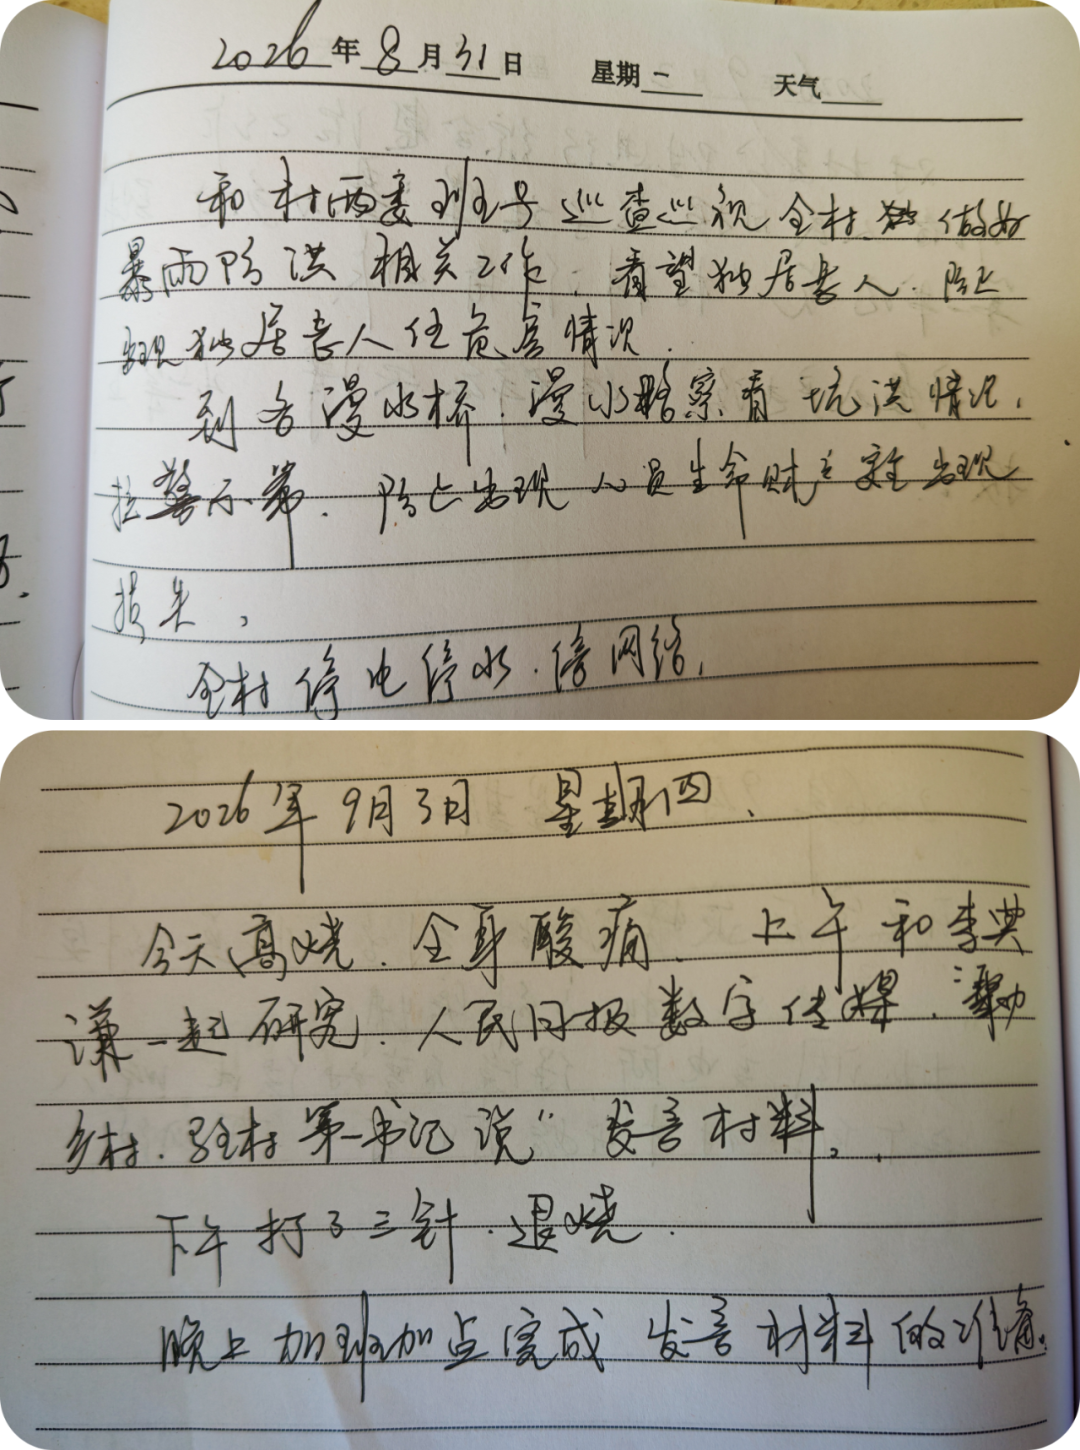 2026年8月31日 星期一 天气
和村两委班子 巡查巡视全村 做好
暴雨防洪相关工作. 看望独居老人. 防止
出现独居老人住危房情况.
到各漫水桥. 漫水路察看坑洪情况,
拉警示带. 防止出现人员生命财产安全出现
损失,
全村停电停水. 停网络,
2026年9月3日 星期四、
今天高烧. 全身酸痛. 上午和李典
谦一起研究. 人民日报数字传媒.
乡村. 驻村第一书记说” 发言材料,
下午打了三针. 退烧.
晚上加班加点完成 发言材料的准备。